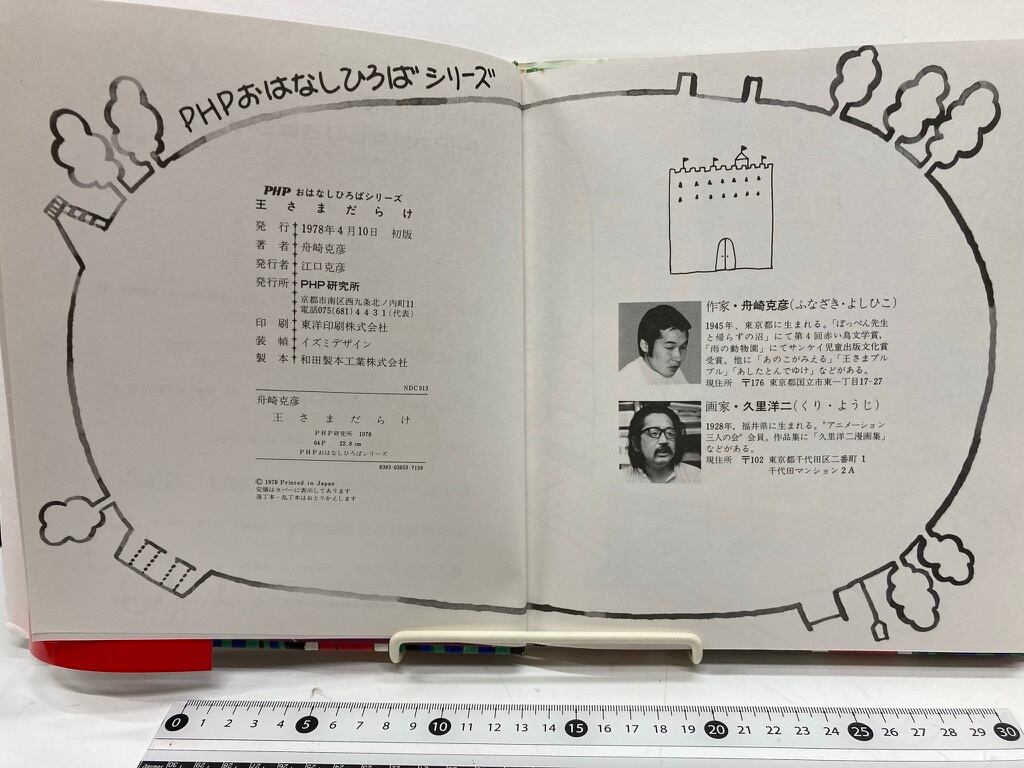 PHPおはなしひろばシリーズ
PHP おはなしひろばシリーズ
王さまだらけ
発行 1978年4月10日 初版
著者 舟崎克彦
発行者 江口克彦
発行所 PHP研究所
京都市南区西九条北ノ内町11
電話075(681)4431(代表)
印刷 東洋印刷株式会社
装幀 イズミデザイン
製本 和田製本工業株式会社
NDC913
舟崎克彦
王さまだらけ
PHP研究所 1978
64P 22.8cm
PHPおはなしひろばシリーズ
8393-03053-7159
© 1978 Printed in Japan
定価はカバーに表示してあります
落丁本・乱丁本はおとりかえします
作家・舟崎克彦(ふなざき・よしひこ)
1945年、東京都に生まれる。「ぽっぺん先生
と帰らずの沼」にて第4回赤い鳥文学賞,
「雨の動物園」にてサンケイ児童出版文化賞
受賞。他に「あのこがみえる」「王さまブル
ブル」「あしたとんでゆけ」などがある。
現住所 〒176 東京都国立市東一丁目17-27
画家・久里洋二(くり・ようじ)
1928年,福井県に生まれる。"アニメーション
三人の会"会員。作品集に「久里洋二漫画集」
などがある。
現住所 〒102 東京都千代田区二番町1
千代田マンション2A
0 1 2 3 4 5 6 7 8 9 10 11 12 13 14 15 16 17 18 19 20 21 22 23 24 25 26 27 28 29 30